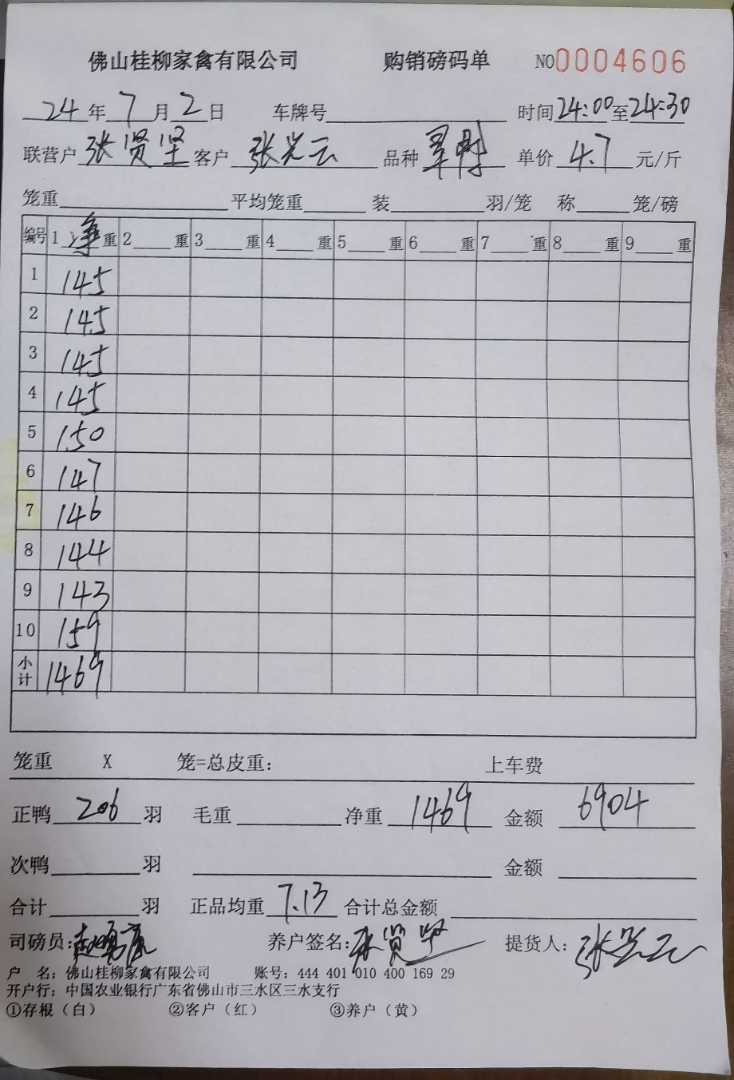 佛山桂柳家禽有限公司 购销磅码单 NO0004606
24年7月2日 车牌号 时间24:00至24:30
联营户 张贤坚 客户 张光云 品种 单价 4.7 元/斤
笼重 平均笼重 装 羽/笼 称 笼/磅
编号 1净重 2 重 3 重 4 重 5 重 6 重 7 重 8 重 9 重
1 145
2 145
3 145
4 145
5 150
6 147
7 146
8 144
9 143
10 159
小计 1469
笼重 X 笼=总皮重: 上车费
正鸭 206 羽 毛重 净重 1469 金额 6904
次鸭 羽 金额
合计 羽 正品均重 7.13 合计总金额
司磅员: 养户签名:张贤坚 提货人:张光云
户 名:佛山桂柳家禽有限公司 账号:444 401 010 400 169 29
开户行:中国农业银行广东省佛山市三水区三水支行
①存根(白) ②客户(红) ③养户(黄)